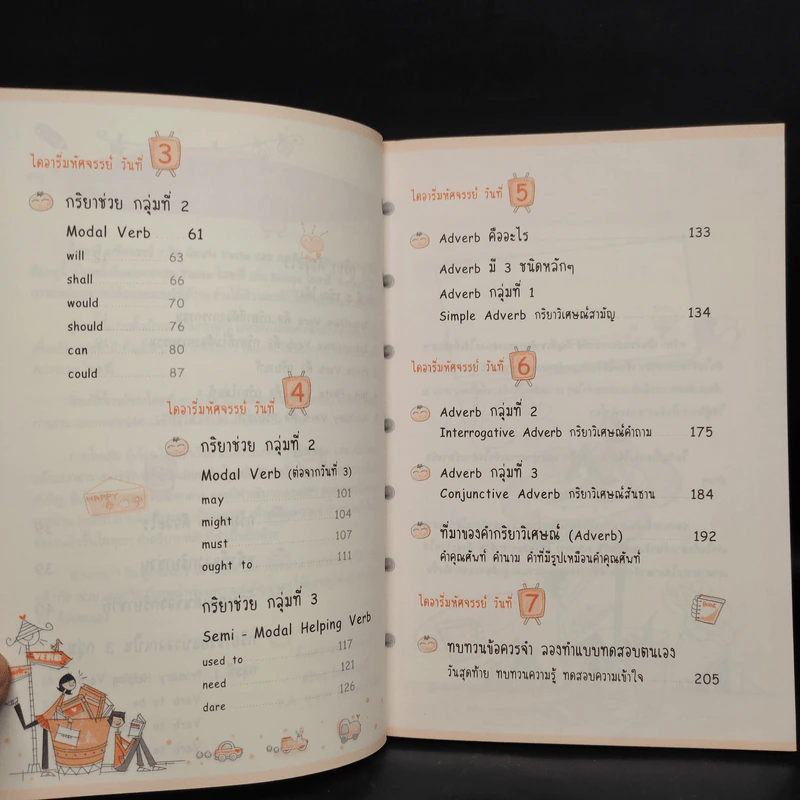 ไดอารี่มหัศจรรย์ วันที่ 3
กริยาช่วย กลุ่มที่ 2
Modal Verb 61
will 63
shall 66
would 70
should 76
can 80
could 87
ไดอารี่มหัศจรรย์ วันที่ 4
กริยาช่วย กลุ่มที่ 2
Modal Verb (ต่อจากวันที่ 3)
may 101
might 104
must 107
ought to 111
กริยาช่วย กลุ่มที่ 3
Semi - Modal Helping Verb
used to 117
need 121
dare 126
VERB
ไดอารี่มหัศจรรย์ วันที่ 5
Adverb คืออะไร 133
Adverb มี 3 ชนิดหลักๆ
Adverb กลุ่มที่ 1
Simple Adverb กริยาวิเศษณ์สามัญ 134
ไดอารี่มหัศจรรย์ วันที่ 6
Adverb กลุ่มที่ 2
Interrogative Adverb กริยาวิเศษณ์คำถาม 175
Adverb กลุ่มที่ 3
Conjunctive Adverb กริยาวิเศษณ์สันธาน 184
ที่มาของคำกริยาวิเศษณ์ (Adverb) 192
คำคุณศัพท์ คำนาม คำที่มีรูปเหมือนคำคุณศัพท์
ไดอารี่มหัศจรรย์ วันที่ 7
ทบทวนข้อควรจำ ลองทำแบบทดสอบตนเอง
วันสุดท้าย ทบทวนความรู้ ทดสอบความเข้าใจ 205